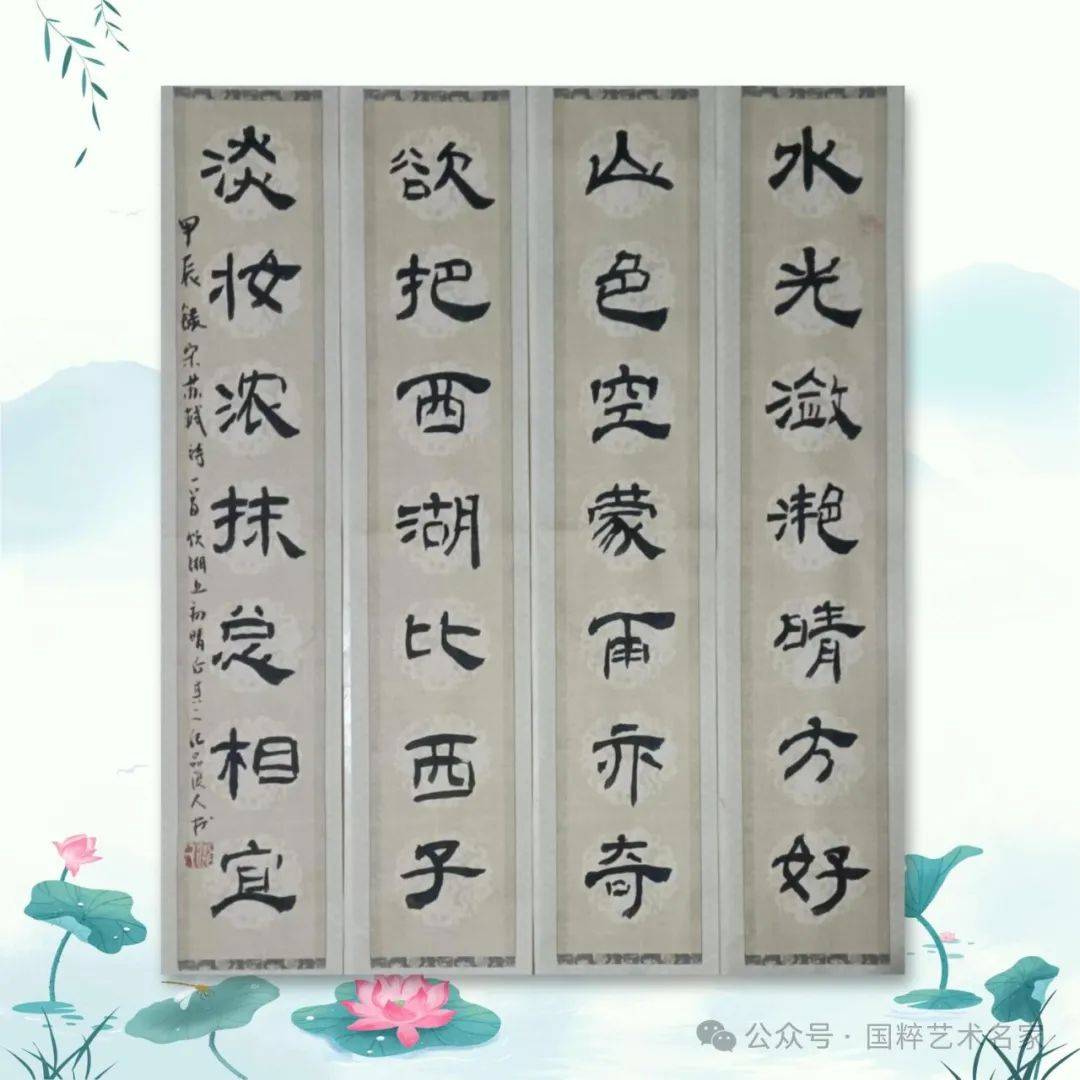 水光潋滟晴方好
山色空蒙雨亦奇
欲把西湖比西子
淡妆浓抹总相宜
甲辰 录宋苏轼诗一首饮湖上初晴后其二
公众号·国粹艺术名家